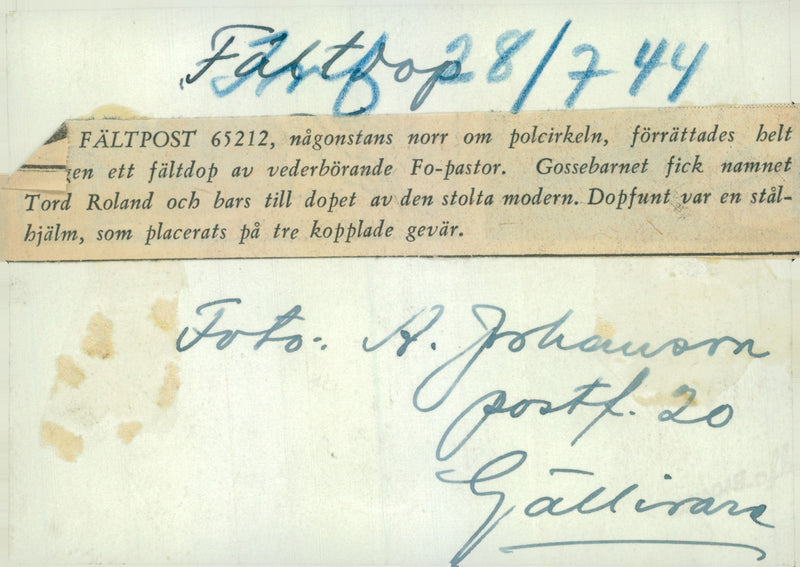 Fältdop 28/7 44
FÄLTPOST 65212, någonstans norr om polcirkeln, förrättades helt
en ett fältdop av vederbörande Fo-pastor. Gossebarnet fick namnet
Tord Roland och bars till dopet av den stolta modern. Dopfunt var en stål-
hjälm, som placerats på tre kopplade gevär.
Foto: A. Johanson
postf. 20
Gällivare